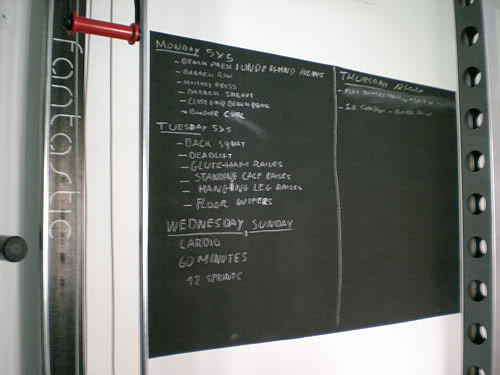 fantastic
MONDAY 5x5
- BENCH PRESS / UNDERHAND
- BARBELL ROW
- MILITARY PRESS
- BARBELL SHRUGS
- CLOSE GRIP BENCH PRESS
- BARBELL CURL
TUESDAY 5x5
- BACK SQUAT
- DEADLIFT
- GLUTE-HAM RAISES
- STANDING CALF RAISES
- HANGING LEG RAISES
- FLOOR WIPERS
WEDNESDAY, SUNDAY
CARDIO
60 MINUTES
12 SPRINTS
THURSDAY